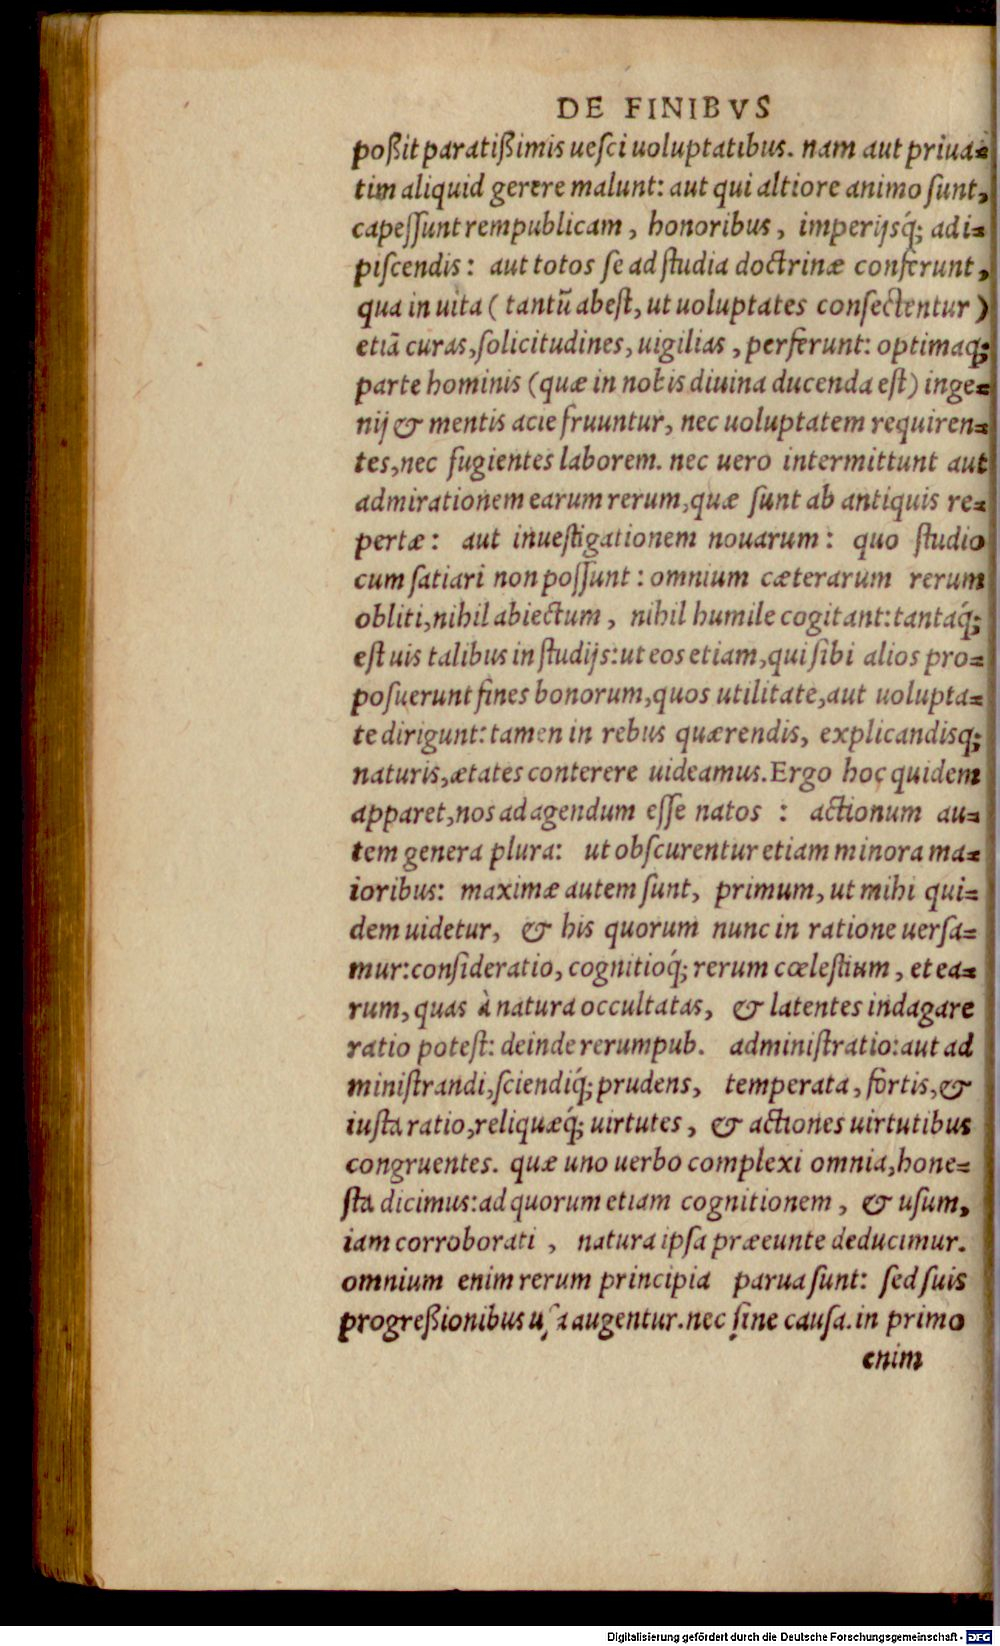 DE FINIBVS
poßit paratißimis uesci uoluptatibus. nam aut priua=
tim aliquid gerere malunt: aut qui altiore animo sunt,
capessunt rempublicam, honoribus, imperijsq́; adi=
piscendis: aut totos se ad studia doctrinæ conferunt,
qua in uita ( tantũ abest, ut uoluptates consectentur )
etiã curas, solicitudines, uigilias, perferunt: optimaq́;
parte hominis (quæ in nobis diuina ducenda est) inge=
nij & mentis acie fruuntur, nec uoluptatem requiren=
tes, nec fugientes laborem. nec uero intermittunt aut
admirationem earum rerum, quæ sunt ab antiquis re=
pertæ: aut inuestigationem nouarum: quo studio
cum satiari non possunt: omnium cæterarum rerum
obliti, nihil abiectum, nihil humile cogitant: tantaq́;
est uis talibus in studijs: ut eos etiam, qui sibi alios pro=
posuerunt fines bonorum, quos utilitate, aut uolupta=
te dirigunt: tamen in rebus quærendis, explicandisq;
naturis, ætates conterere uideamus. Ergo hoc quidem
apparet, nos ad agendum esse natos : actionum au=
tem genera plura: ut obscurentur etiam minora ma=
ioribus: maximæ autem sunt, primum, ut mihi qui=
dem uidetur, & his quorum nunc in ratione uersa=
mur: consideratio, cognitioq́; rerum cœlestium, et ea=
rum, quas à natura occultatas, & latentes indagare
ratio potest: deinde rerum pub. administratio: aut ad
ministrandi, sciendiq́; prudens, temperata, fortis, &
iusta ratio, reliquæq́; uirtutes, & actiones uirtutibus
congruentes. quæ uno uerbo complexi omnia, hone=
sta dicimus: ad quorum etiam cognitionem, & usum,
iam corroborati , natura ipsa præeunte deducimur.
omnium enim rerum principia parua sunt: sed suis
progreßionibus usa augentur. nec sine causa. in primo
enim
Digitalisierung gefördert durch die Deutsche Forschungsgemeinschaft - DFG